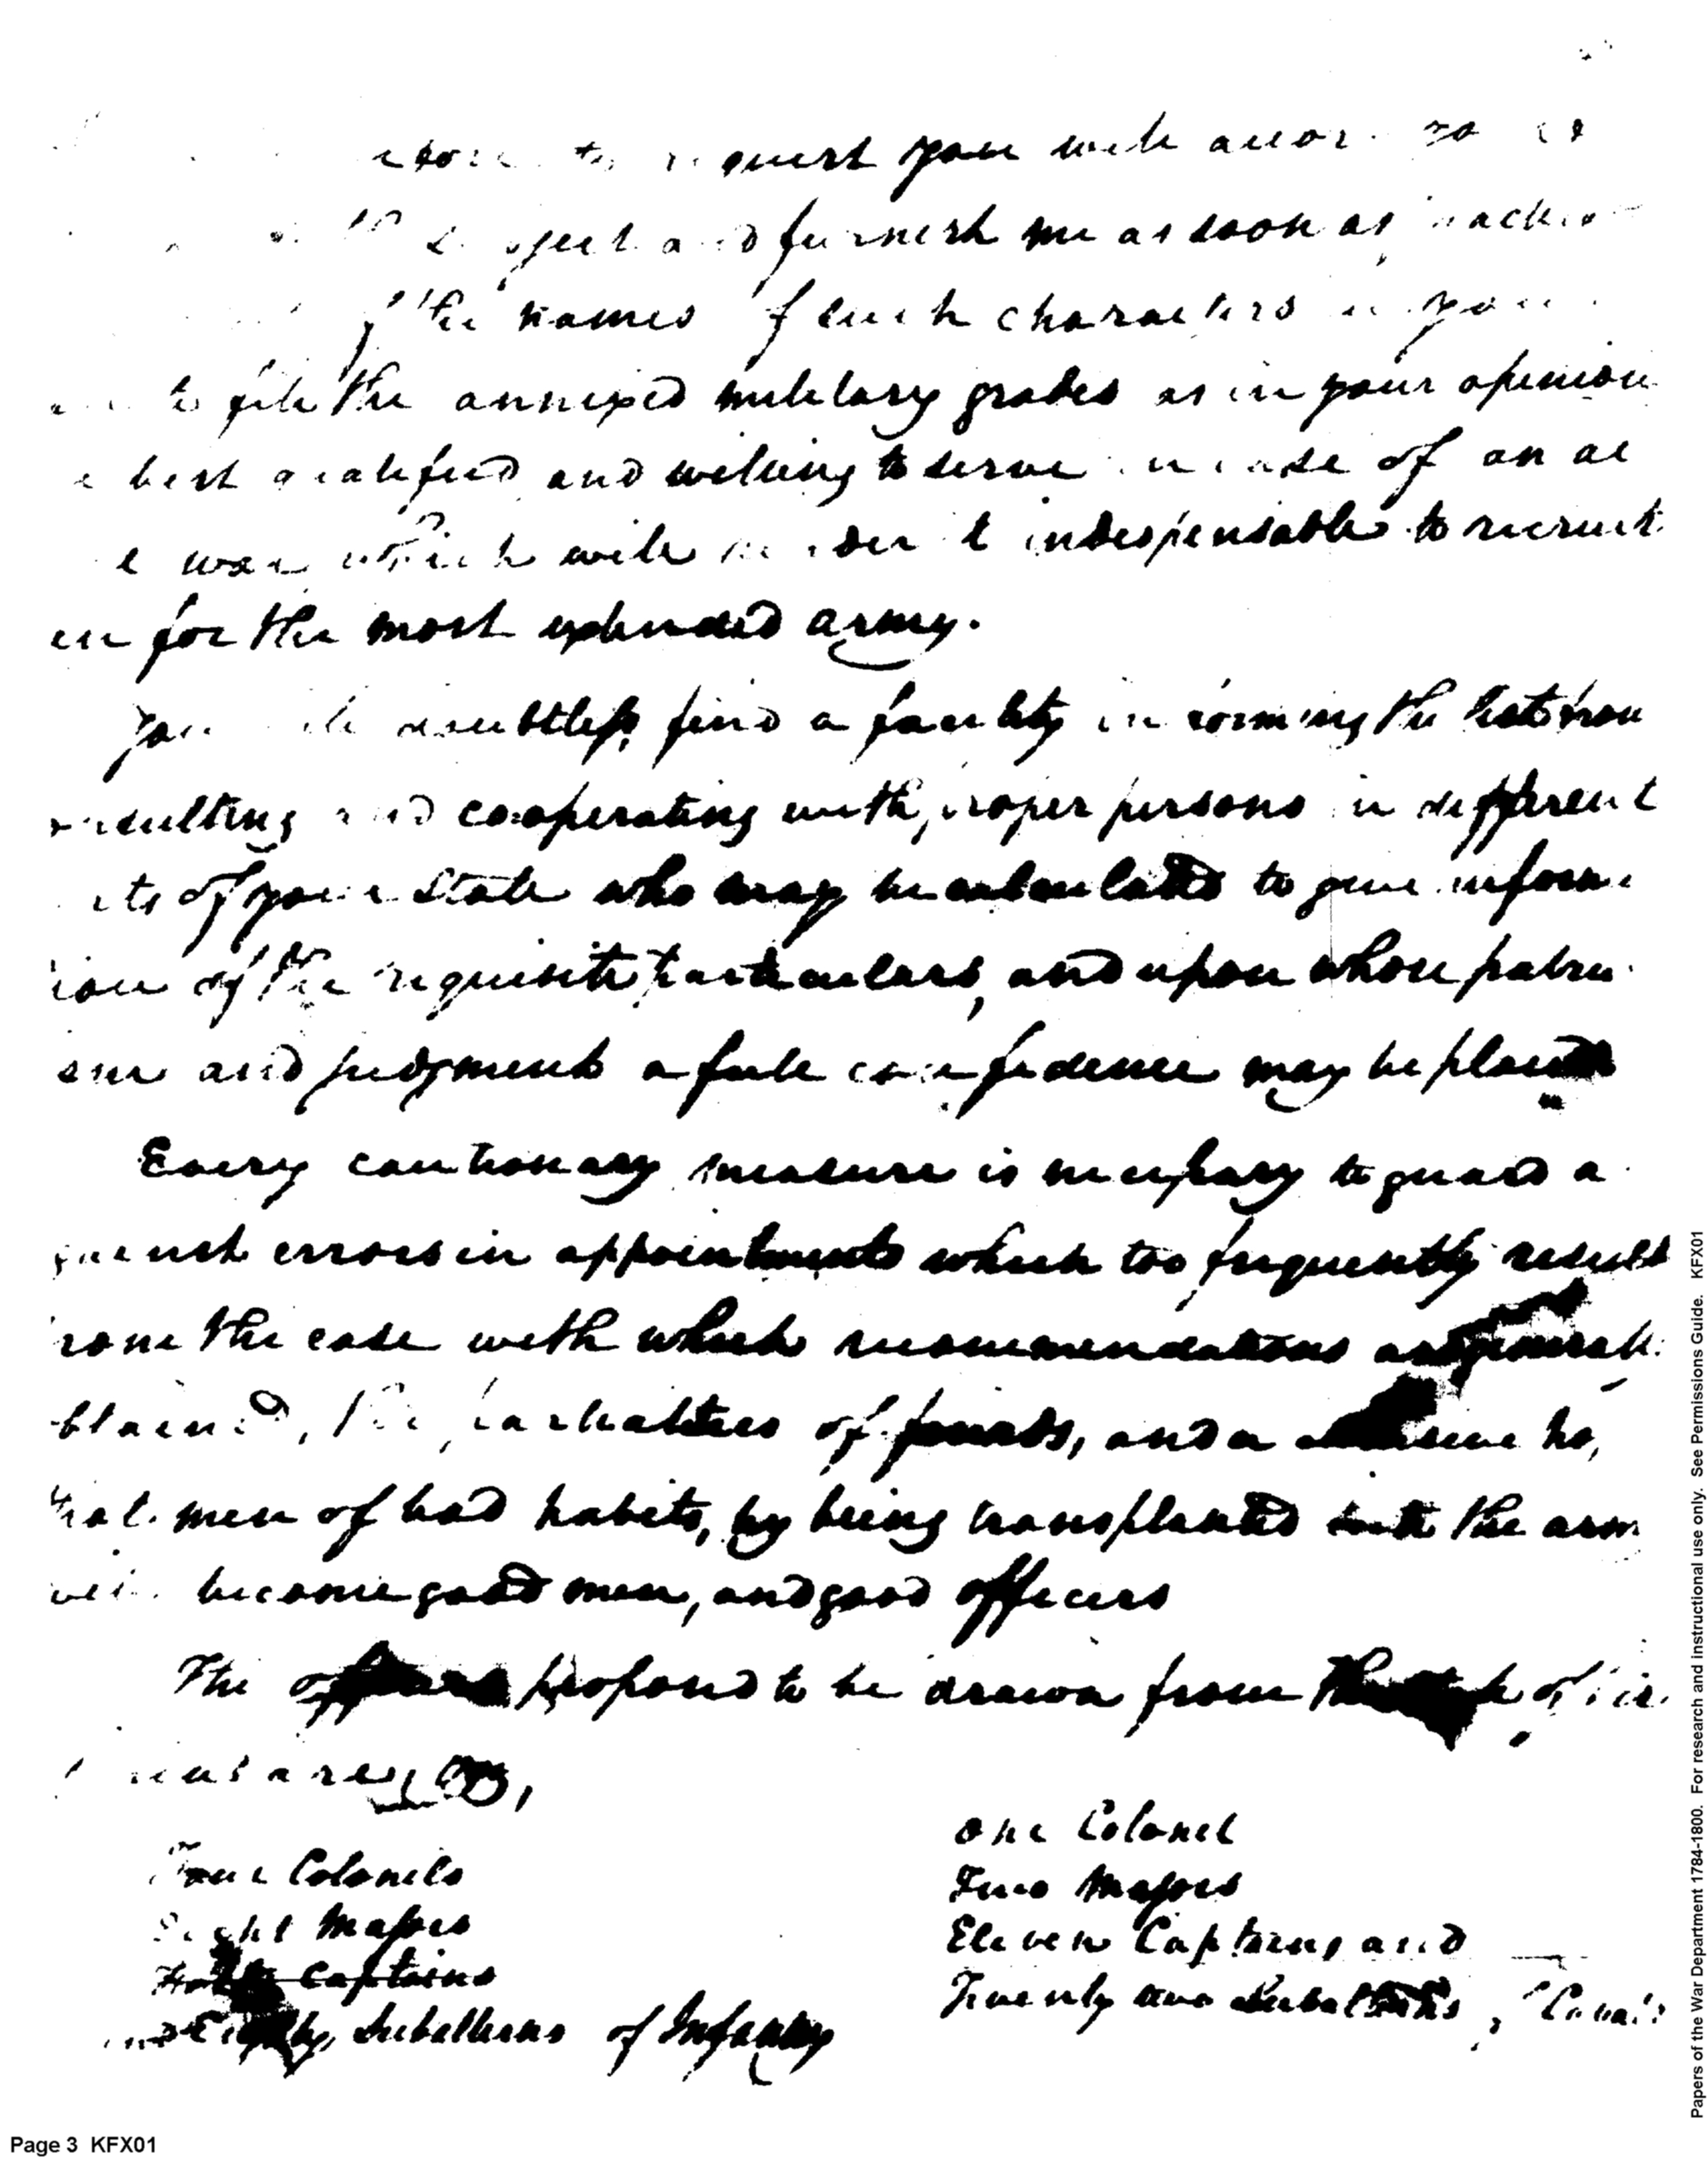 request you will
and furnish me as soon as
of the names of such characters
to fill the annexed military grades as in your opinion
best qualified and willing to serve in case of an ac
war which will render it indispensable to recruit
for the most extended army.
You doubtless, find a facility in forming the list from
and cooperating with proper persons in different
of your State who may be calculated to give informa
tion of the requisite particulars, and upon whose patrio
and judgment a full confidence may be placed
Every cautionary measure is necessary to guard a
gainst errors in appointments which too frequently result
from the ease with which recommendations are generally
obtained, the partialities of friends, and a ho,
that men of bad habits, by being transplanted into the arm
will become good men, and good officers
The officers proposed to be drawn from the State of Vir.
are,
Four Colonels
Eight Majors
Forty Captains
Eighty Subalterns of Infantry
One Colonel
Two Majors
Eleven Captains and
Twenty two Subalterns, of Caval
Page 3 KFX01
Papers of the War Department 1784-1800. For research and instructional use only. See Permissions Guide. KFX01